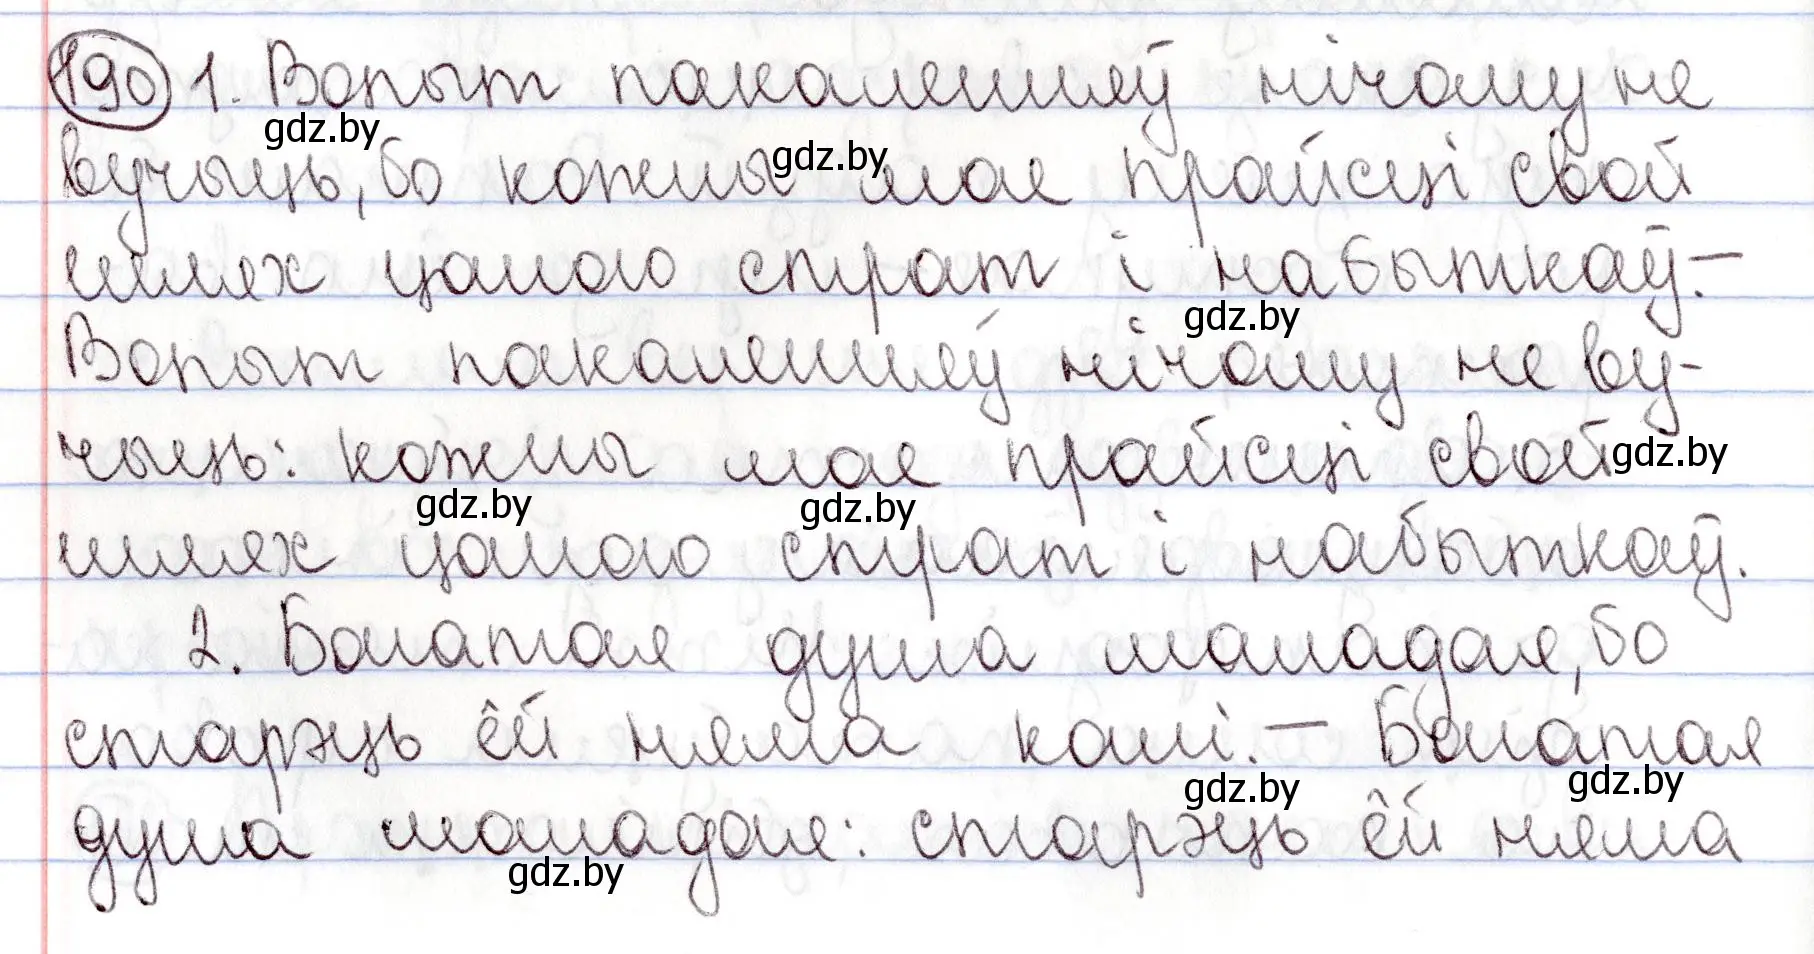 190 1. Вопыт пакаленняў нічому не
gdz.by
вучыць, бо кожны мае прайсці свой
gdz.by
шлях цаною страт і набыткаў. –
gdz.by
Вопыт пакаленняў нічому не ву-
чыць: кожны мае прайсці свой
gdz.by
gdz.by gdz.by
шлях цаною страт і набыткаў.
2. Багатая душа маладая, бо
старэць ёй няма калі. – Багатая
gdz.by gdz.by
душа маладая: старэць ёй няма
gdz.by